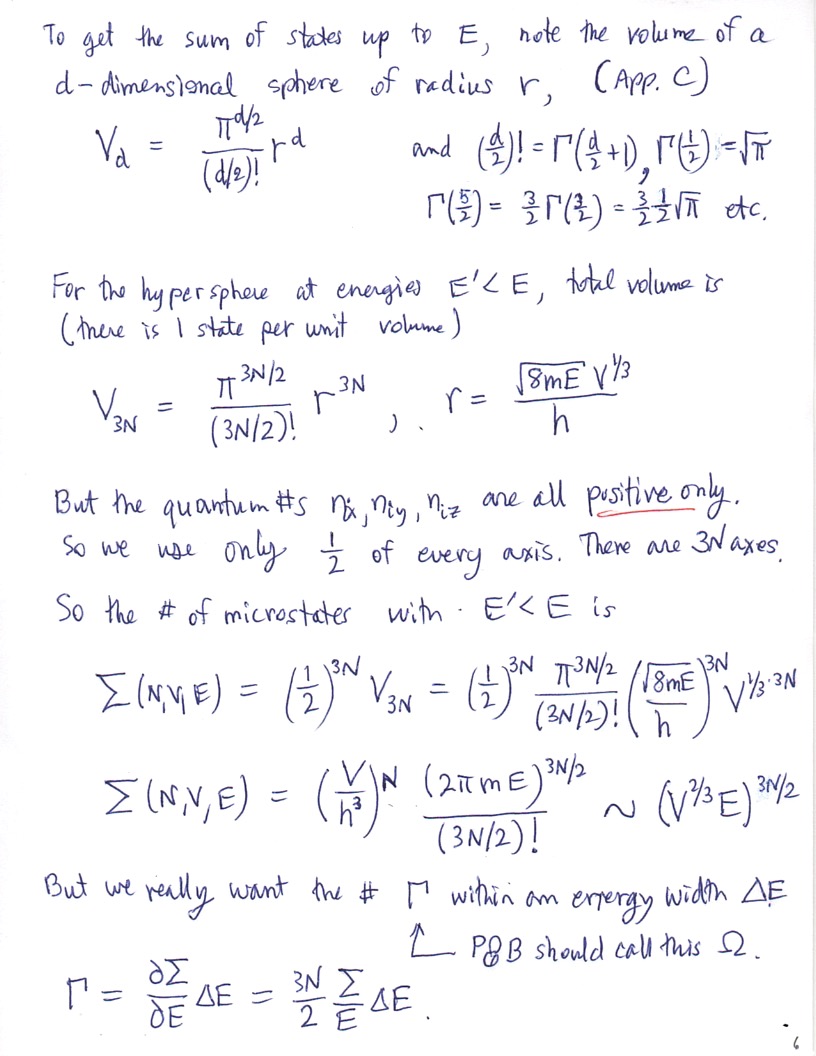 To get the sum of states up to E, note the volume of a
d-dimensional sphere of radius r, (App. C)
V_d = π^{d/2}/(d/2)! r^d and (d/2)! = Γ(d/2+1), Γ(1/2) = √π
Γ(5/2) = 3/2 Γ(3/2) = 3/2 1/2 √π etc.
For the hypersphere at energies E'< E, total volume is
(there is 1 state per unit volume)
V_{3N} = π^{3N/2}/(3N/2)! r^{3N}, r = √(8mE) V^{1/3}/h
But the quantum #s n_{ix}, n_{iy}, n_{iz} are all positive only.
So we use only 1/2 of every axis. There are 3N axes.
So the # of microstates with E'< E is
Σ(N,V,E) = (1/2)^{3N} V_{3N} = (1/2)^{3N} π^{3N/2}/(3N/2)! (√(8mE)/h)^{3N} V^{1/3·3N}
Σ(N,V,E) = (V/h³)^N (2πmE)^{3N/2}/(3N/2)! ~ (V^{2/3}E)^{3N/2}
But we really want the # Γ within an energy width ΔE
P&B should call this Ω.
Γ = ∂Σ/∂E ΔE = 3N/2 Σ/E ΔE.
6